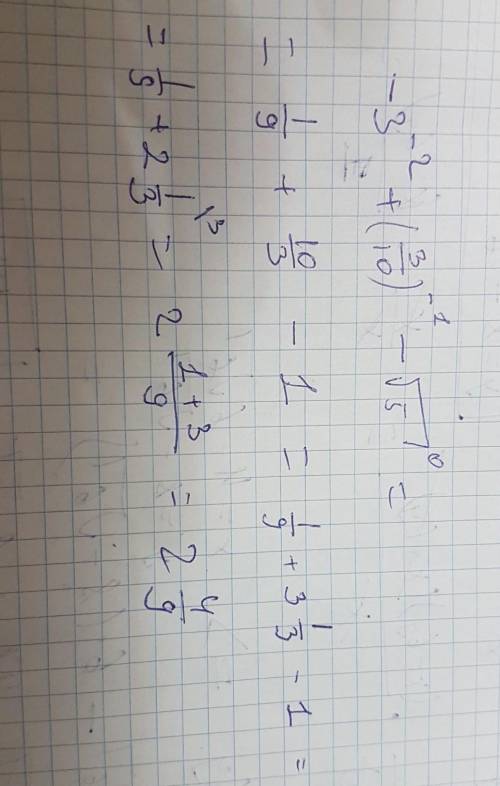 -3^{-2} + (3/10)^{-1} - √5^0 =
= 1/9 + 10/3 - 1 = 1/9 + 3 1/3 - 1 =
= 1/9 + 2 1/3 \3 = 2 (1+3)/9 = 2 4/9